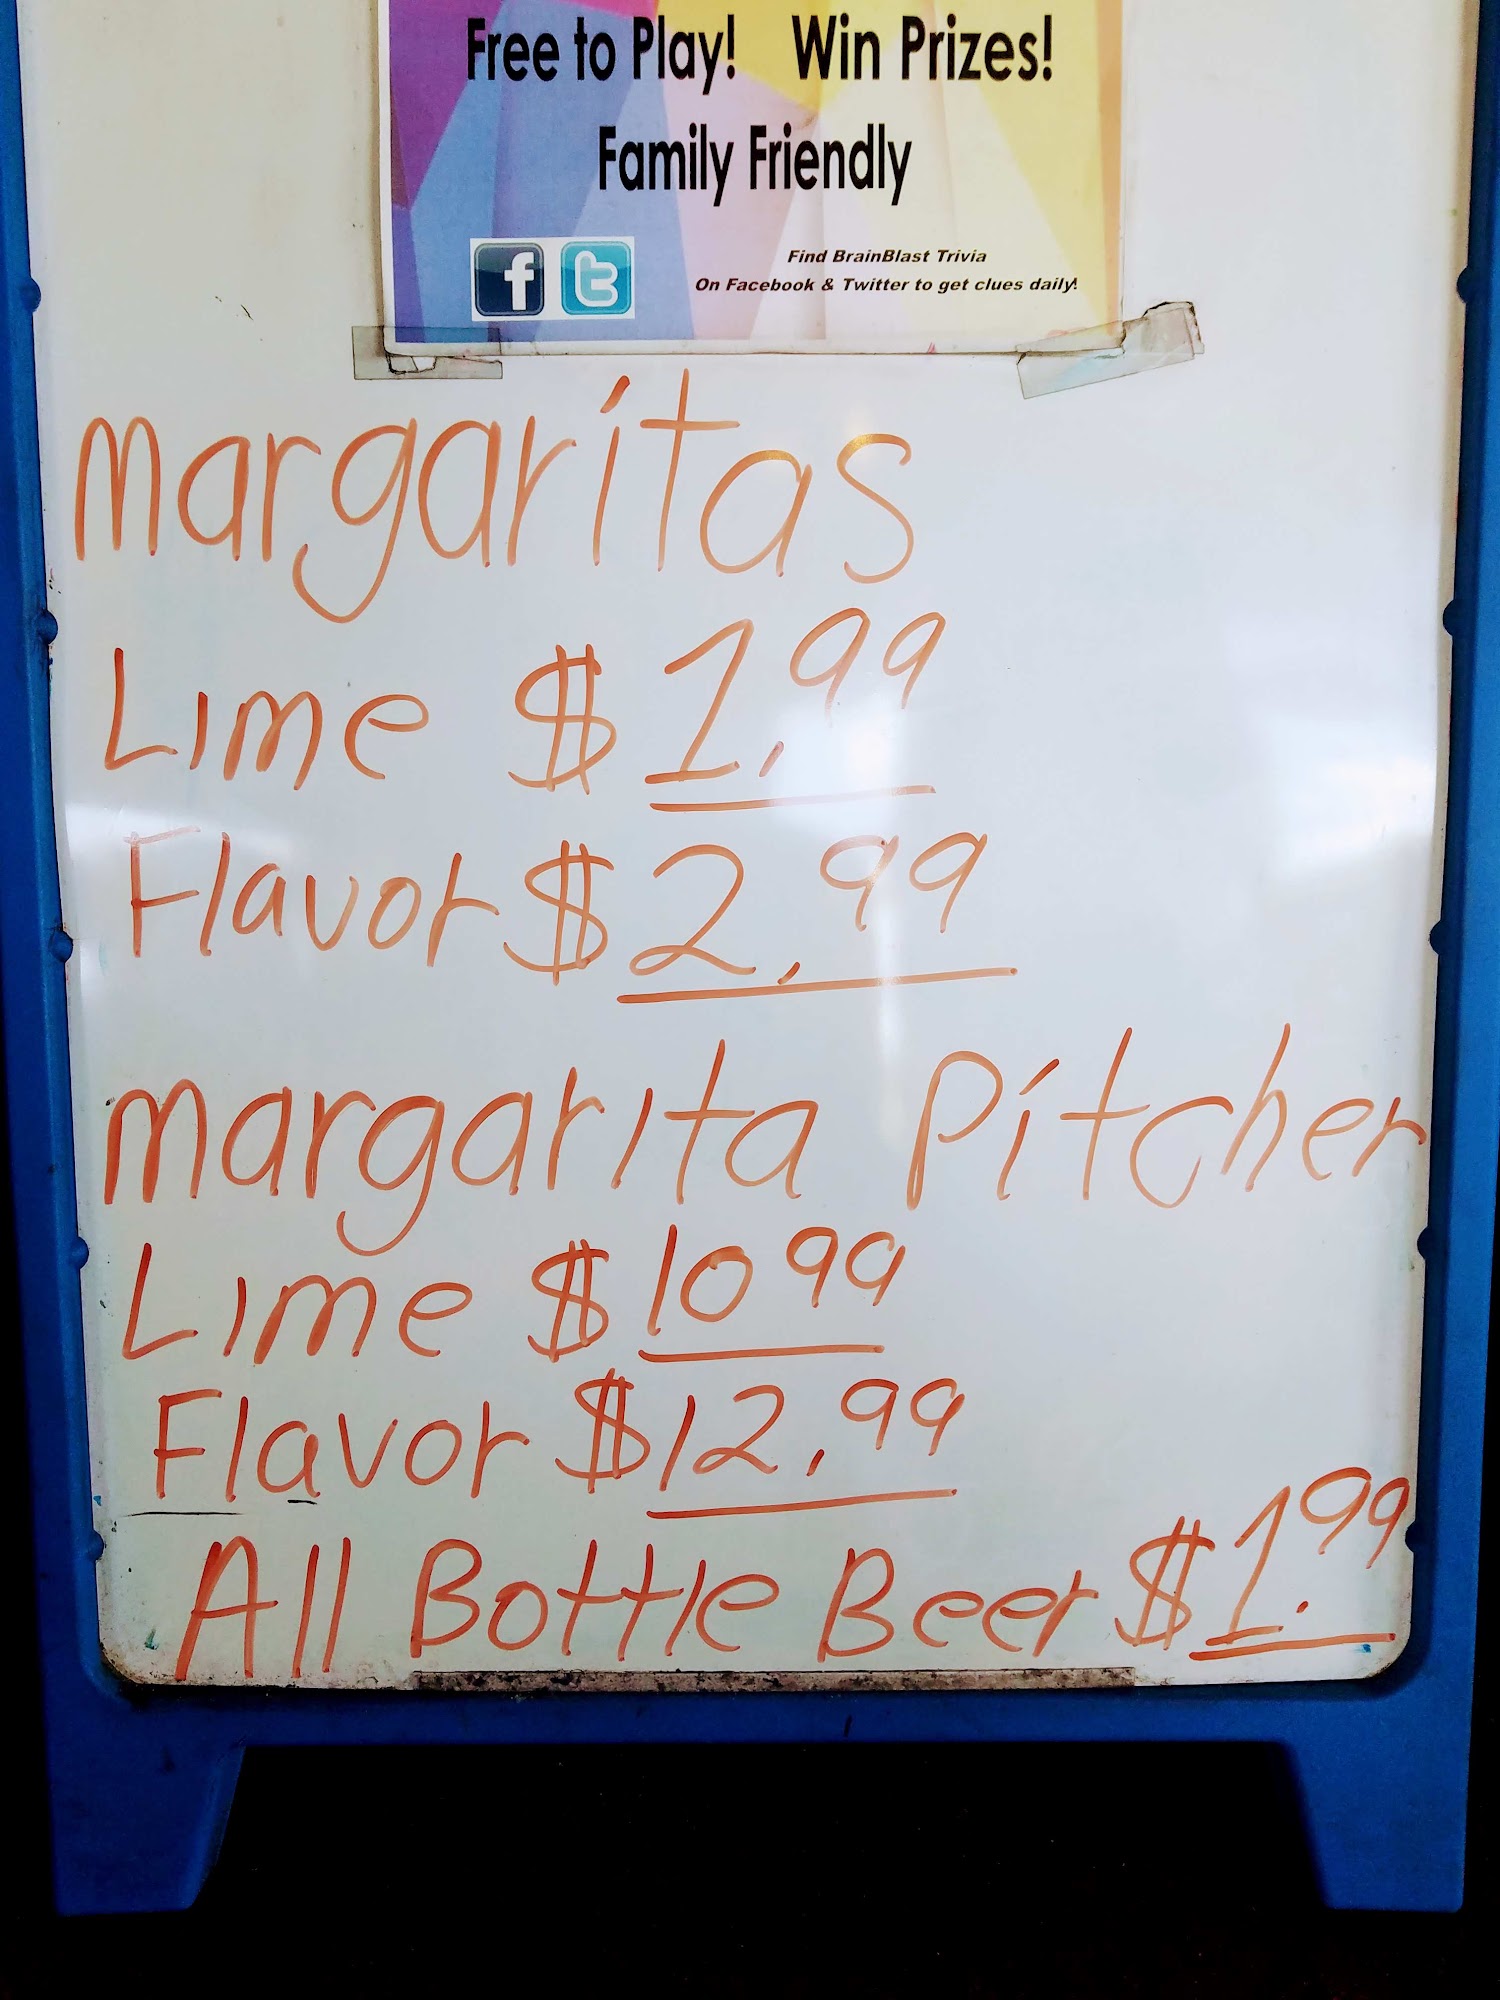 Free to Play! Win Prizes!
Family Friendly
f t
Find BrainBlast Trivia
On Facebook & Twitter to get clues daily!
margaritas
Lime $1.99
Flavor $2.99
margarita Pitcher
Lime $10 99
Flavor $12.99
All Bottle Beer $1.99